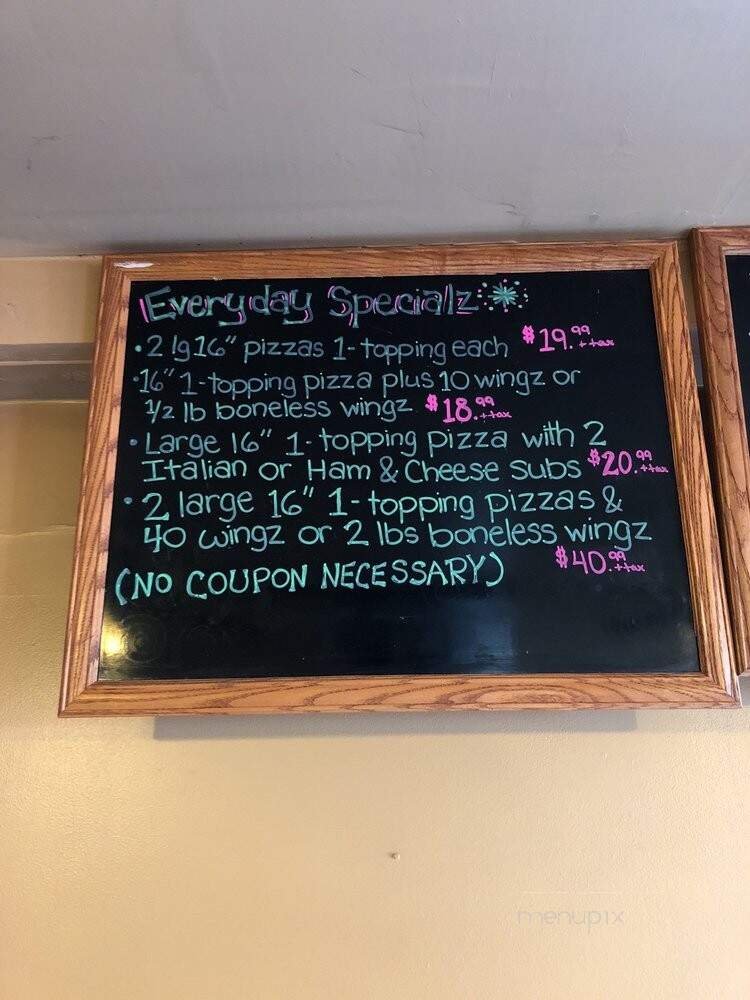 Everyday Specialz
• 2 lg 16" pizzas 1-topping each $19.99 + tax
• 16" 1-topping pizza plus 10 wingz or
1/2 lb boneless wingz $18.99 + tax
• Large 16" 1-topping pizza with 2
Italian or Ham & Cheese subs $20.99 + tax
• 2 large 16" 1-topping pizzas &
40 wingz or 2 lbs boneless wingz
$40.99 + tax
(NO COUPON NECESSARY)
menupix